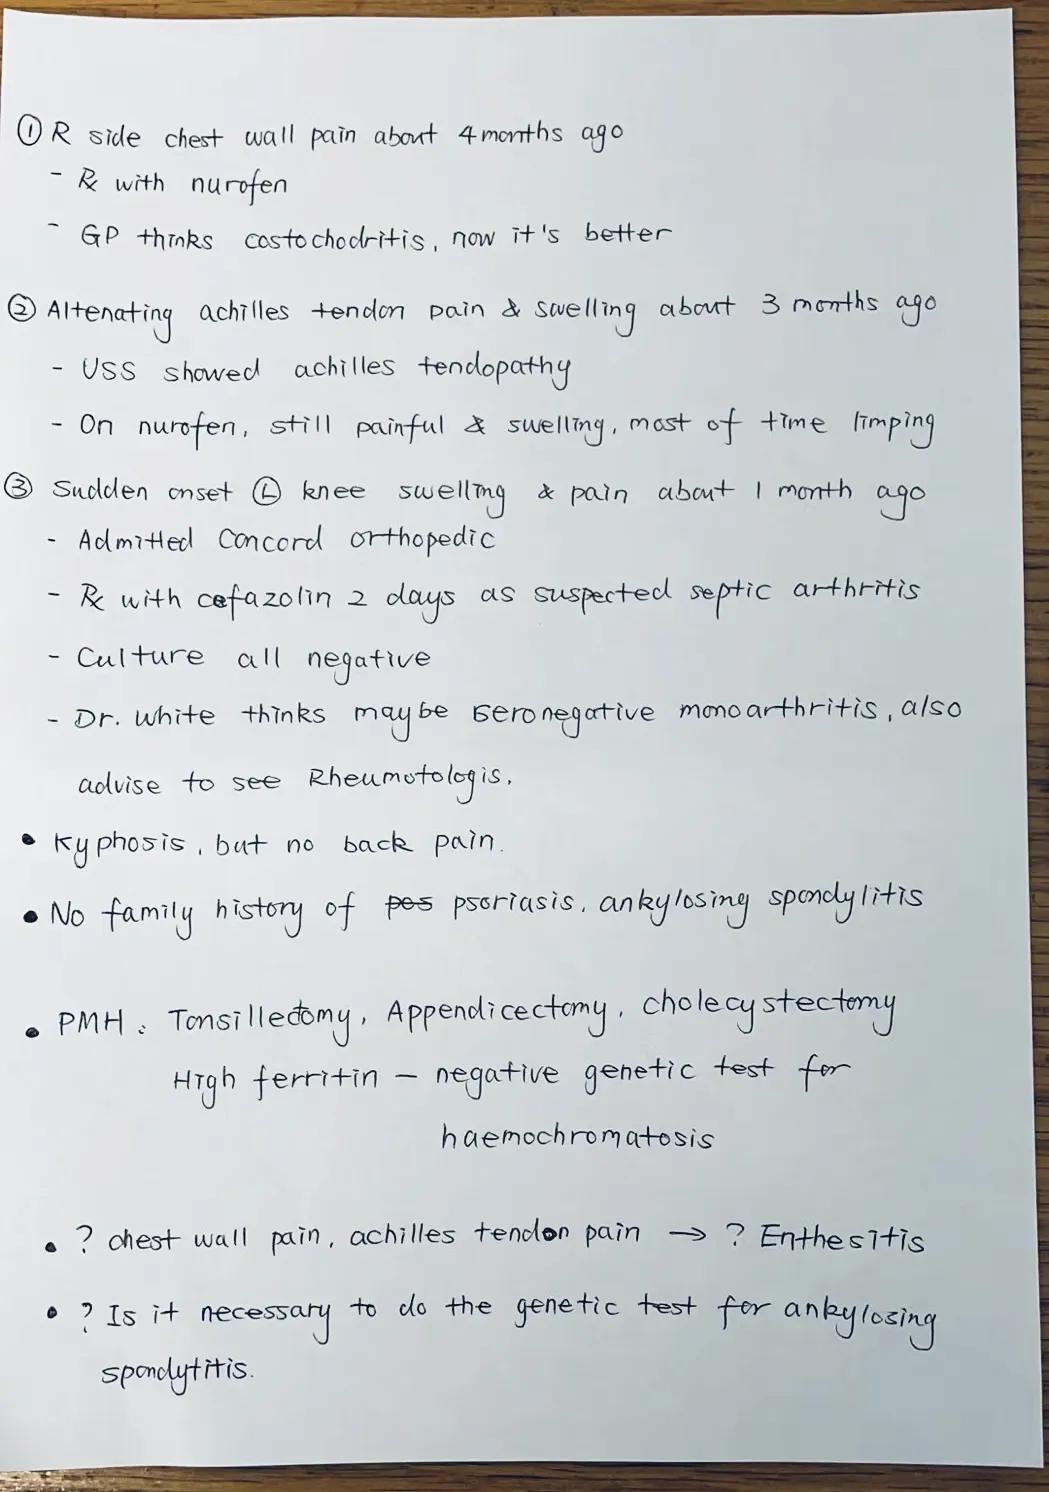 ① R side chest wall pain about 4 months ago
- Rx with nurofen
- GP thinks costochodritis, now it's better
② Altenating achilles tendon pain & swelling about 3 months ago
- USS showed achilles tendopathy
- On nurofen, still painful & swelling, most of time limping
③ Sudden onset Ⓛ knee swelling & pain about 1 month ago
- Admitted Concord orthopedic
- Rx with cefazolin 2 days as suspected septic arthritis
- Culture all negative
- Dr. White thinks maybe seronegative monoarthritis, also
advise to see Rheumotologis.
• Kyphosis, but no back pain.
• No family history of pos psoriasis, ankylosing spondylitis
• PMH: Tonsilledomy, Appendicectomy, cholecystectomy
High ferritin – negative genetic test for
haemochromatosis
• ? chest wall pain, achilles tendon pain → ? Enthesitis
• ? Is it necessary to do the genetic test for ankylosing
spondytitis.